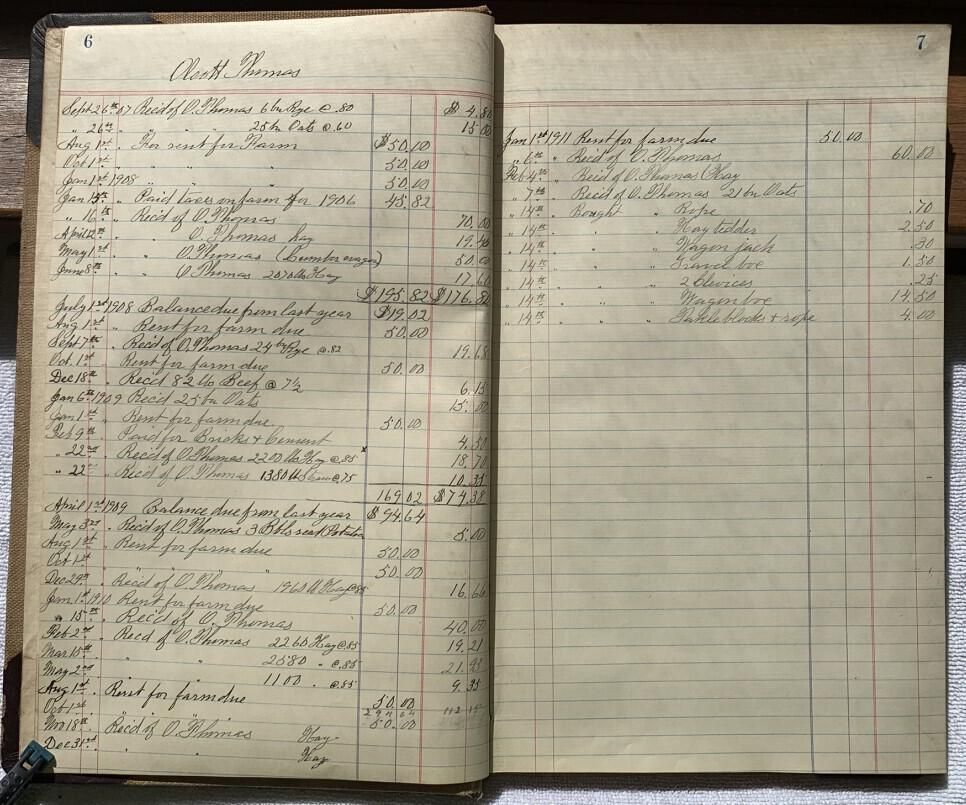 6
Thomas
Sept 26th 07 Rec'd of O. Thomas 6 bu Rye @ .80 $ 4.80
" 26th " " " 25 bu Oats @ .60 15 00
Aug 1st " For rent for Farm $50.00
Oct 1st " " " 50.00
Jan 1st 1908 " " 50.00
Jan 15th " Paid taxes on farm for 1906 45.82
" 16th " Rec'd of O. Thomas 70.00
April 12th " " O. Thomas hay
May 1st " " O. Thomas (Lumber wagon) 50.00
June 8th " O. Thomas 2070 lbs Hay 17.60
$195.82 $176.80
July 1st 1908 Balance due from last year $19.02
Aug 1st " Rent for farm due 50.00
Sept 7th " Rec'd of O. Thomas 24 bu Rye @ .82 19.68
Oct. 1st " Rent for farm due 50.00
Dec 18th " Rec'd 82 lbs Beef @ 7½ 6.15
Jan 6th 1909 Rec'd 25 bu Oats 15.00
Jan 1st " Rent for farm due 50.00
Feb 9th " Paid for Bricks & Cement 4.50
" 22nd " Rec'd of O. Thomas 2200 lbs Hay @ .85 x 18.70
" 22 " Rec'd of O. Thomas 1380 lb Straw @ .75 10.35
169.02 $74.38
April 1st 1909 Balance due from last year $94.64
May 3rd " Rec'd of O. Thomas 3 Bbls seed Potatoes 5.00
Aug 1st " Rent for farm due 50.00
Oct 1st " " " 50.00
Dec 29th " Rec'd of O. Thomas 1960 lb Hay @ 85 16.66
Jan 1st 1910 Rent for farm due 50.00
" 15th " Rec'd of O. Thomas 40.00
Feb 2nd " Rec'd of O. Thomas 2260 Hay @ .85 19.21
Mar 15th " " " 2580 " @ .85 21.93
May 2nd " 1100 " @ .85 9.35
Aug 1st " Rent for farm due 50.00
Oct 1st " 294 64 112 15
Nov 18th " Rec'd of O. Thomas Hay 50.00
Dec 31st " " Hay
7
Jan 1st 1911 Rent for farm due 50.00
" 6th " Rec'd of O. Thomas 60.00
Feb 4th " Rec'd of O. Thomas Hay
" 7th " Rec'd of O. Thomas 21 bu Oats
" 14th " Bought " Rope .70
" 14th " " " Hay tedder 2.50
" 14th " " " Wagon jack .30
" 14th " " " 1.50
" 14th " " " 2 Clevices .25
" 14th " " " Wagon 14.50
" 14th " " " blocks & rope 4.00